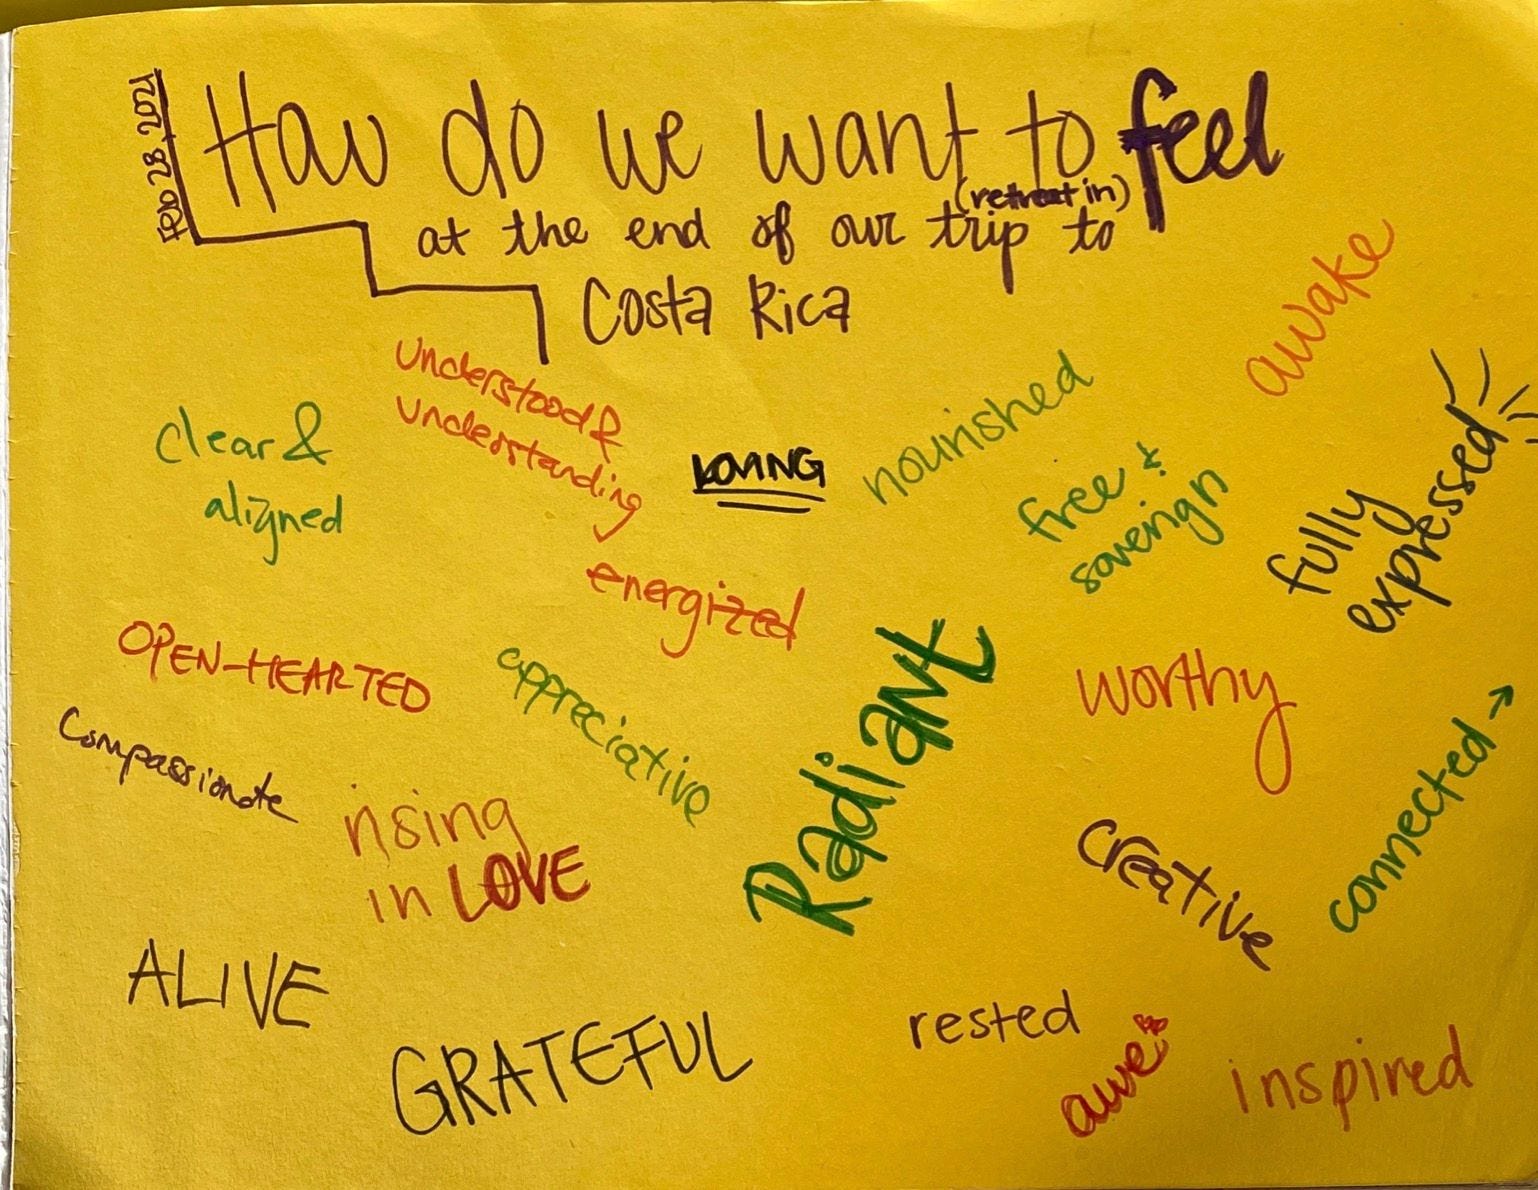 Feb 28, 2021
How do we want to feel
at the end of our trip to
(retreat in)
Costa Rica
awake
understood &
understanding
clear &
aligned
LOVING
nourished
free &
soverign
fully
expressed
energized
OPEN-HEARTED
appreciative
Radiant
worthy
connected →
compassionate
rising
in LOVE
creative
ALIVE
GRATEFUL
rested
awe
inspired